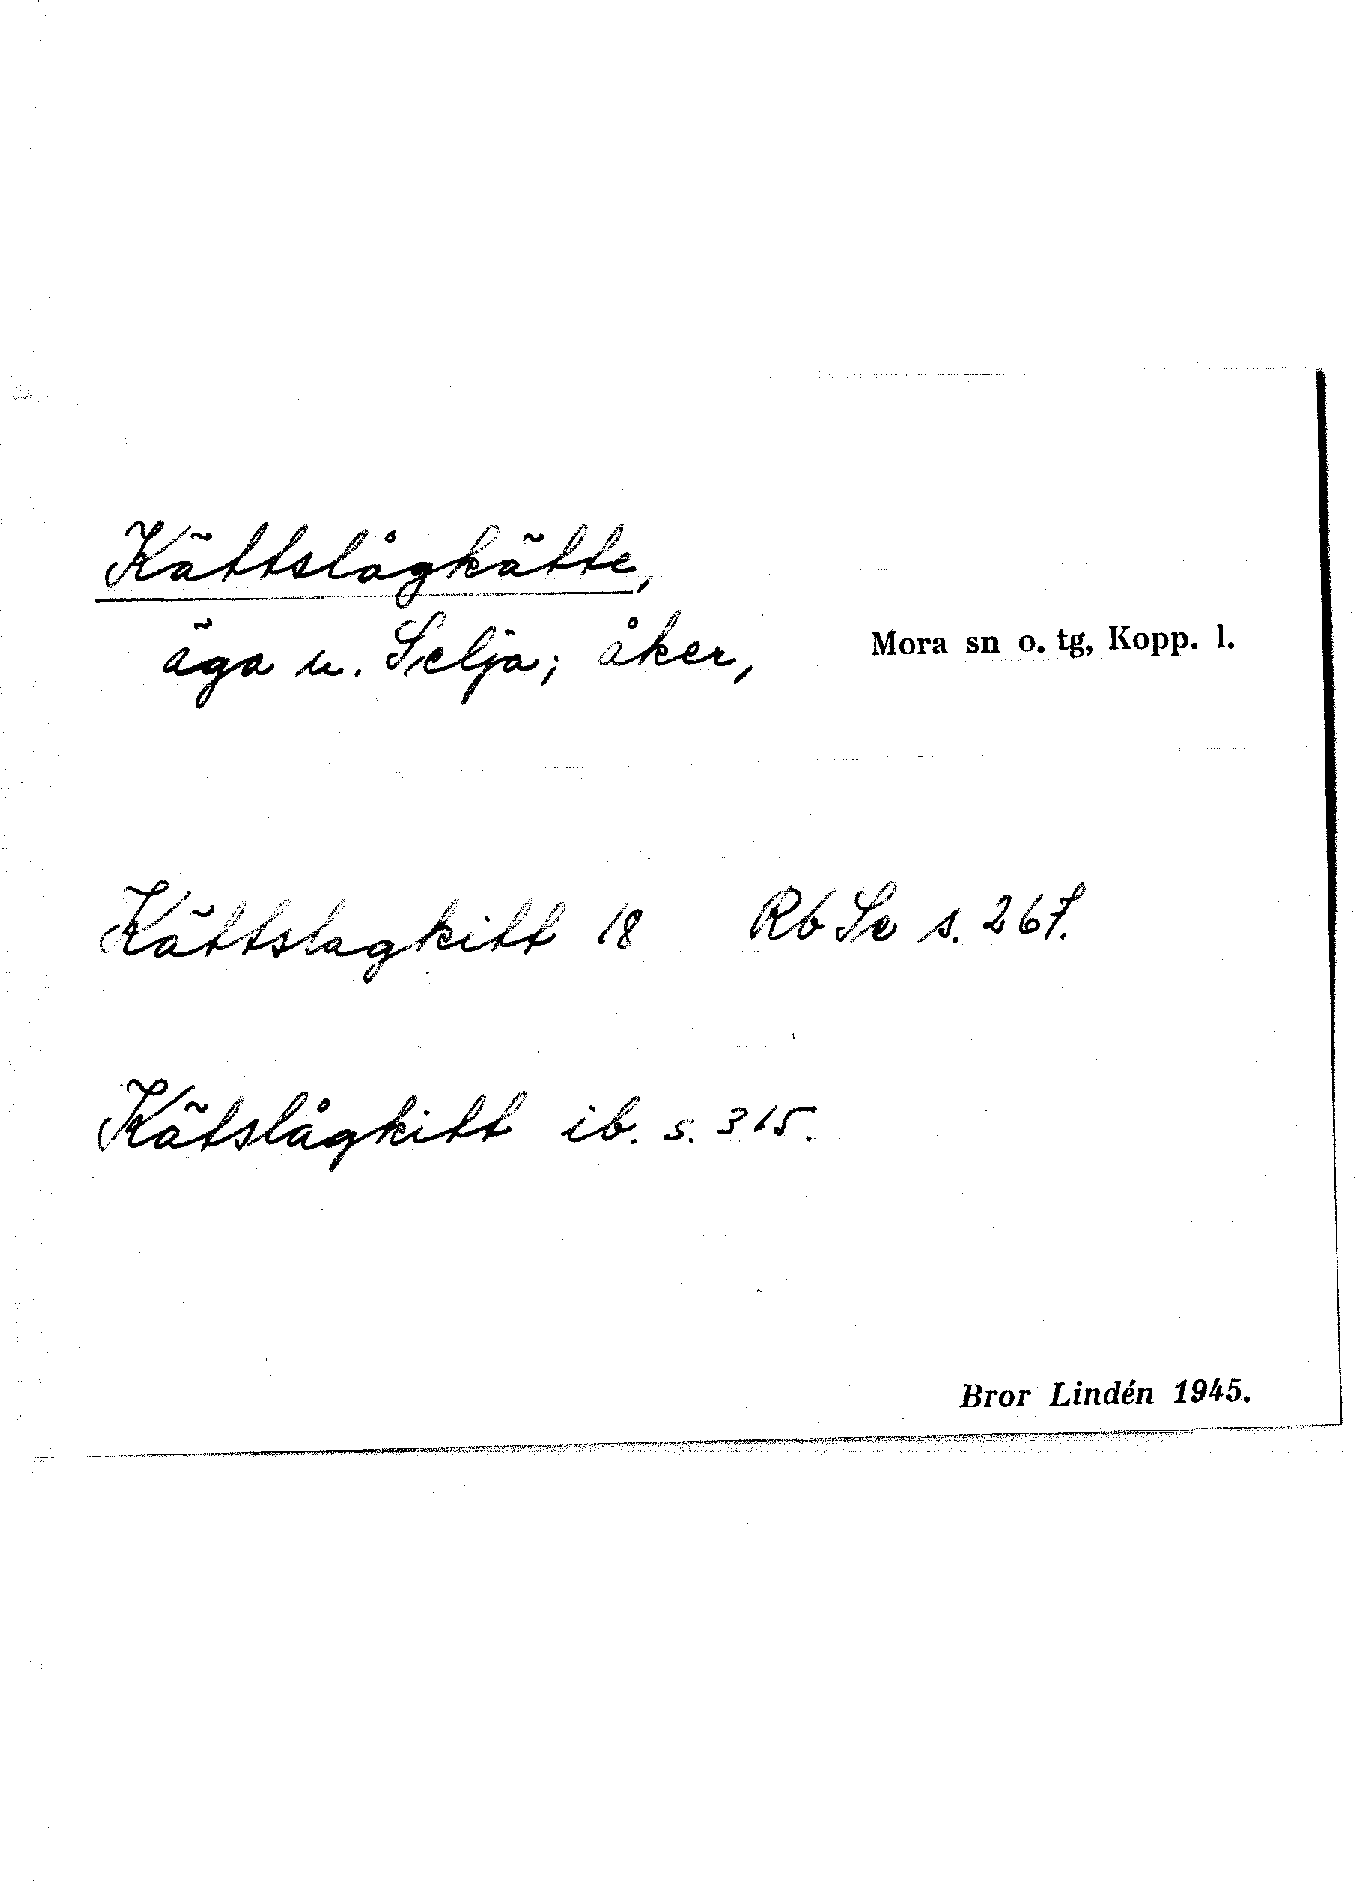 Kättslågkätte,
äga u. Selja; åker,
Mora sn o. tg, Kopp. l.
Kättslagkitt 18 Rb Se s. 267.
Kätslågkitt ib. s. 315.
Bror Lindén 1945.